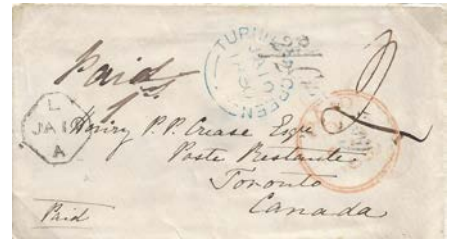 Paid
TURNHAM GREEN
JA 10
L
JA 1
A
Henry P.P. Crease Esqe
Poste Restante
Toronto
Canada
Paid